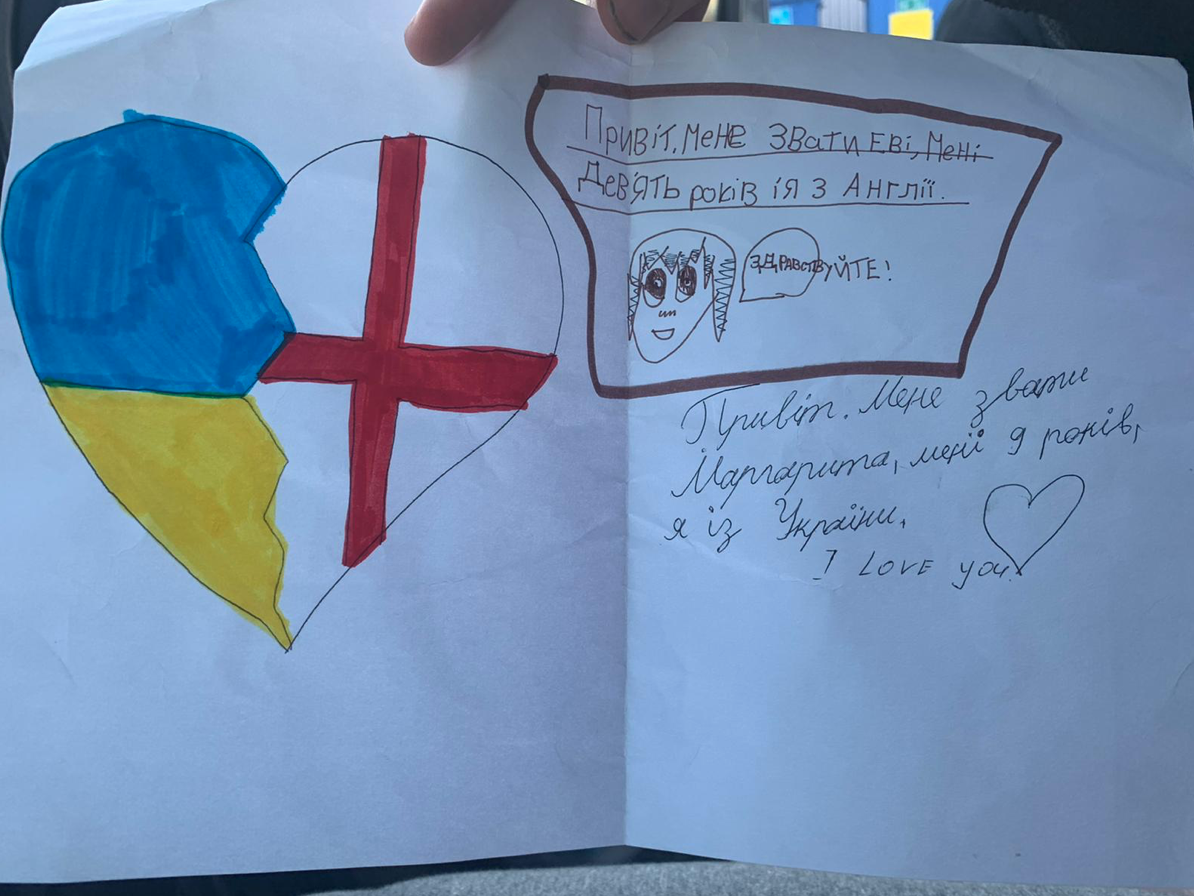 Привіт, мене звати Еві, Мені
Дев'ять років ія з Англії.
ЗДРАВСТВУЙТЕ!
Привіт. Мене звати
Маргарита, мені 9 років,
я із України,
I LOVE you.